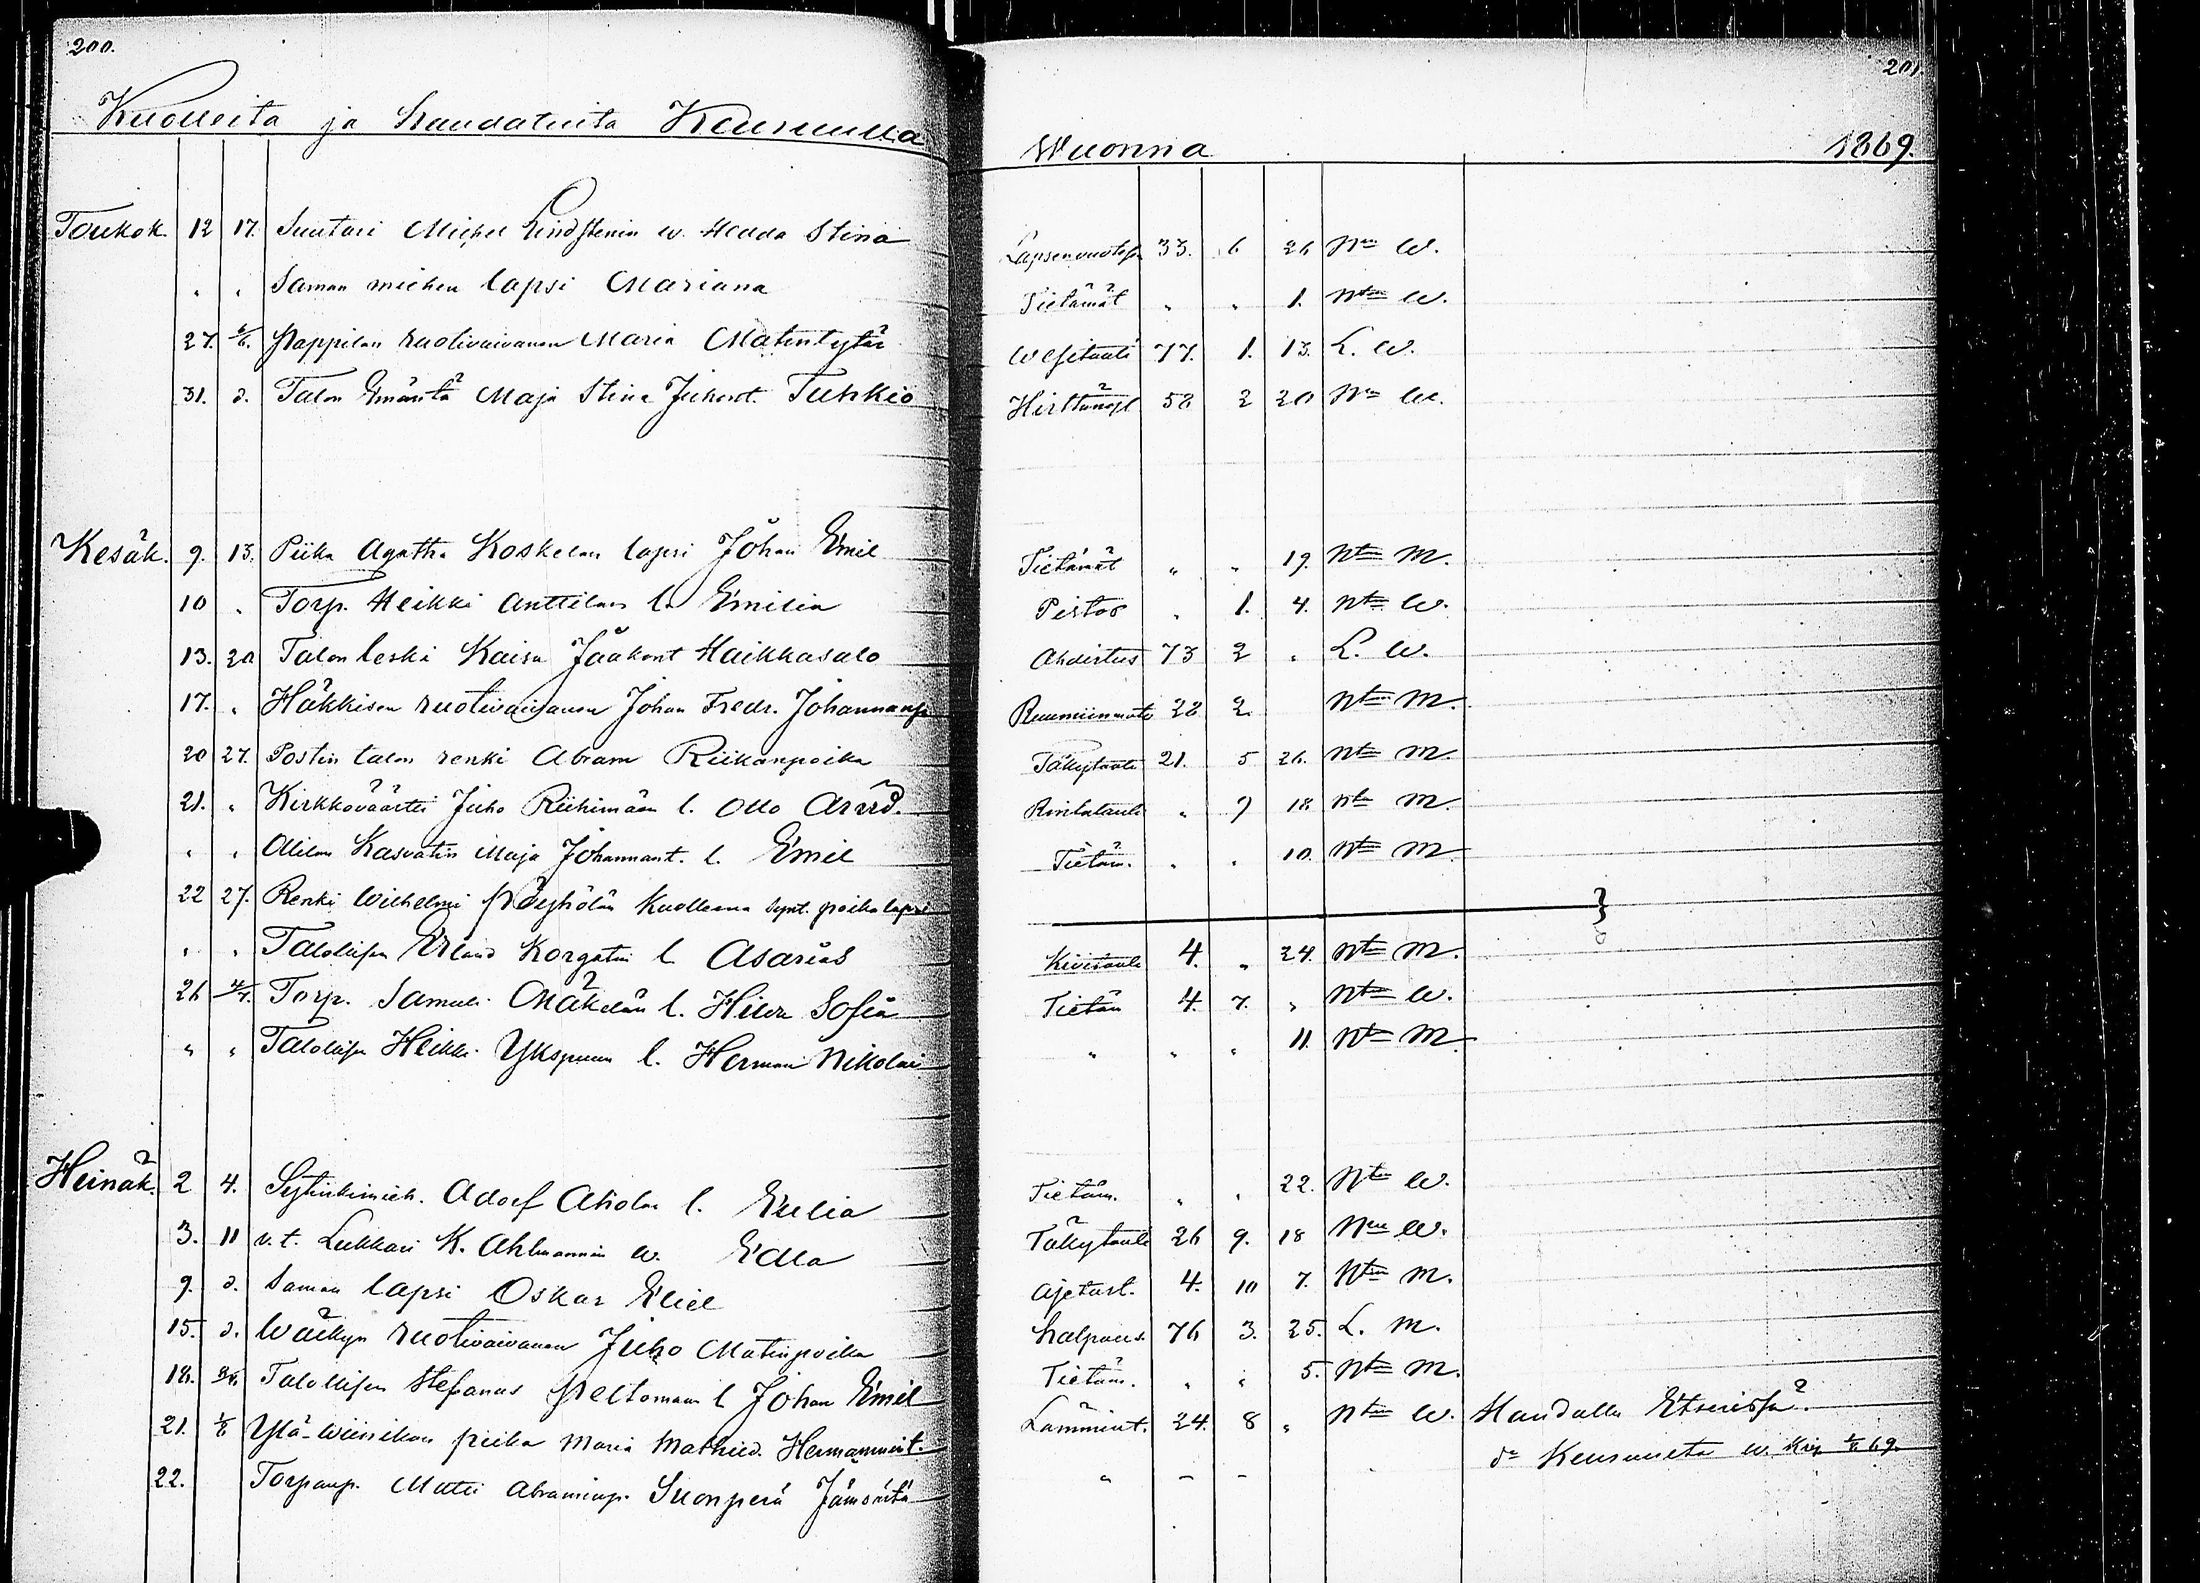 200.
Kuolleita ja haudatuita Keuruulla
201
Wuonna 1869.
Toukok. 12 17. Suutari Michel Lindstenin w. Hedda Stina Lapsenvuotes 33. 6 26 Nn W.
" " Saman miehen lapsi Mariana Tietämät " " 1. Ntn W.
27. 6/6. Pappilan ruotivaivanen Maria Matintytär Wesitauti 77. 1. 13. L. W.
31. d. Talon Emäntä Maja Stina Juhont. Tuhkio 58 2 20 Nn W.
Kesäk. 9. 13. Piika Agatha Koskelan lapsi Johan Emil Tietämät " " 19. Ntn M.
10 " Torp. Heikki Anttilan l. Emilia Pistos " 1. 4. Ntn W.
13. 20 Talon leski Kaisa Jaakont Haikkasalo Ahdistus 73 2 " L. W.
17. " Häkkisen ruotivaivanen Johan Fredr. Johannanp. 28 2. Ntn M.
20 27. Postin talon renki Abram Riikanpoika Täkytauti 21. 5 26. Ntn M.
21. " Kirkkoväärti Juho Riihimäen l. Otto Arvid. Rintatauti " 9 18 Ntn M.
" " Kasvatin Maja Johannant. l. Emil Tietäm. " " 10. Ntn M
22 27. Renki Wilhelmi Pöyhölän kuolleena synt. poikalapsi
" " Talollisen Erland Korgatin l. Asarias Kivitauti 4. " 24. Ntn M.
26 4/7. Torp. Samuli Mäkelän l. Hilda Sofia Tietäm 4. 7. " Ntn W.
" " Talollisen Heikki Ykspuun l. Herman Nikolai " " " 11. Ntn M.
Heinäk. 2 4. Adolf Aholan l. Eulia Tietäm. " " 22. Ntn W.
3. 11 v.t. Lukkari K. Ahlmannin w. Edla Täkytauti 26 9. 18 Nn W.
9. d. Saman lapsi Oskar Eliel Ajetust. 4. 10 7. Ntn M.
15. d. Wäikyn ruotivaivanen Juho Matinpoika halpaus. 76 3. 25. L. M.
18. Talollisen Stefanus Peltomaan l Johan Emil Tietäm. " " 5. Ntn M.
21. 1/8 Ylä-Wiinikan piika Maria Mathild. Hermannint. Lämmint. 24. 8 " Ntn W. Haudattu Etserissä.
22. Torpanp. Matti Abraminp. Suonperä Jämsästä " – – dn Keuruulta